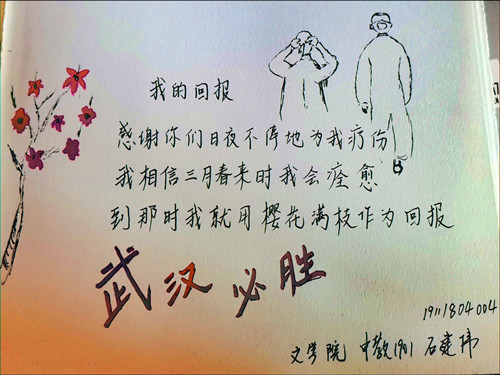 我的回报
感谢你们日夜不停地为我疗伤
我相信三月春来时我会痊愈
到那时我就用樱花满枝作为回报
武汉必胜
1911804004
文学院 中教1901 石建玮